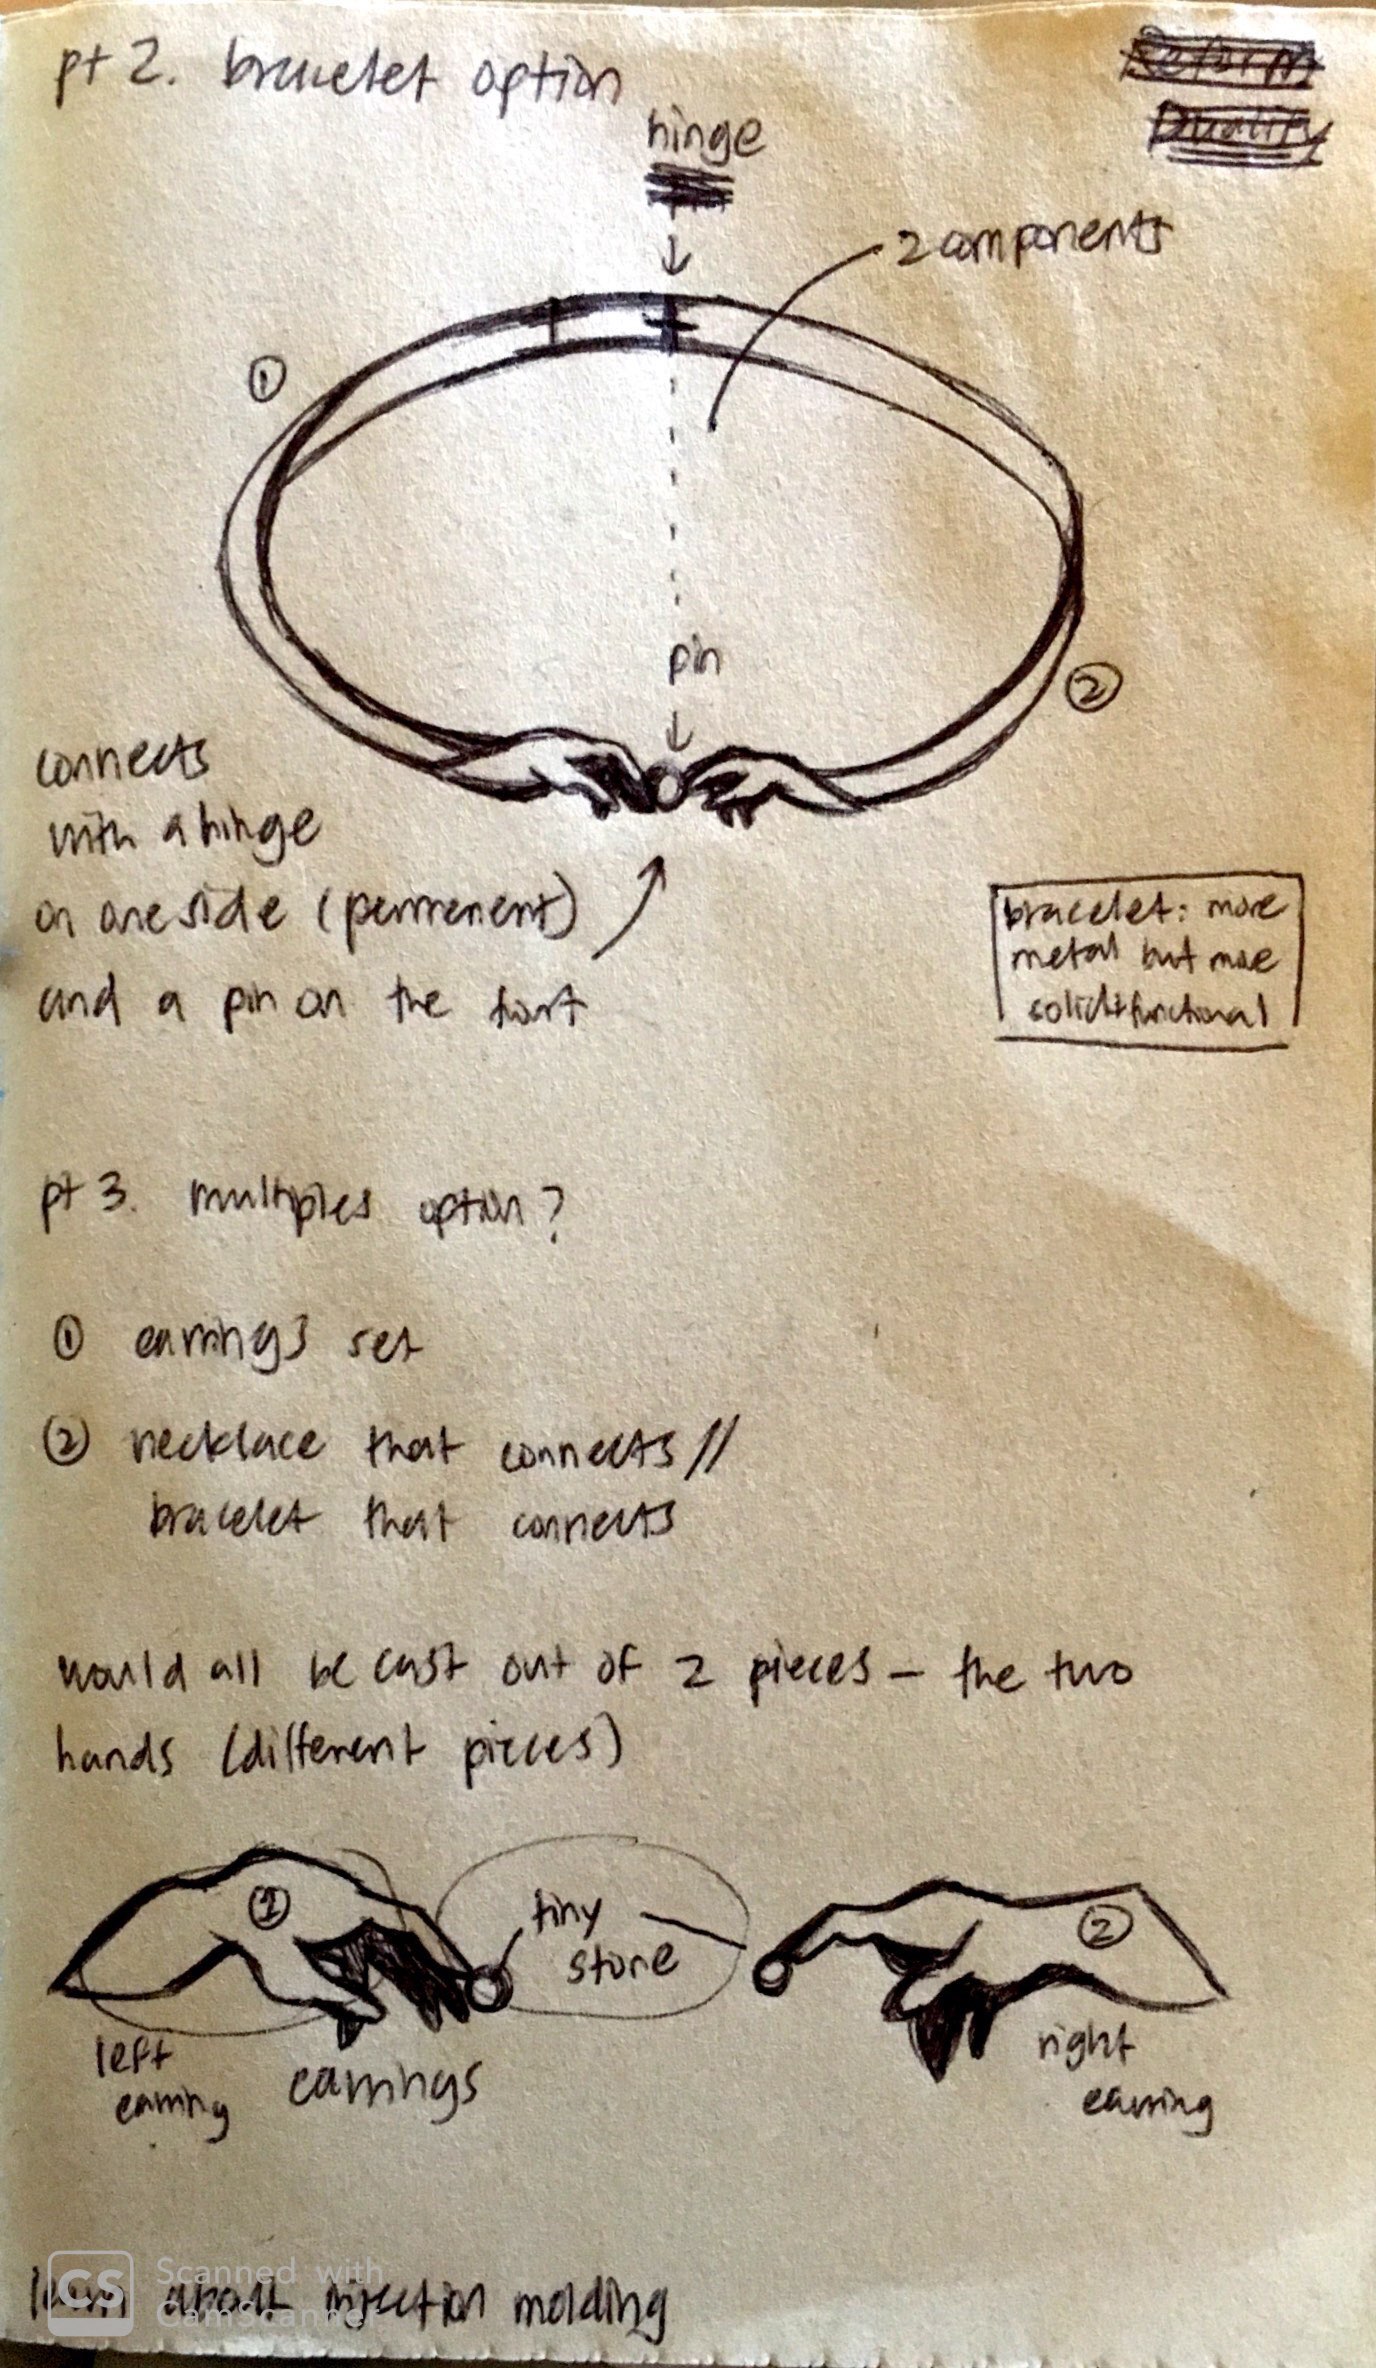 pt 2. bracelet option
Reform
Duality
hinge
2 components
①
pin
②
connects
with a hinge
on one side (permenent)
and a pin on the
bracelet: more
metal but more
solid+functional
pt 3. multiples option?
① earrings set
② necklace that connects //
bracelet that connects
would all be cast out of 2 pieces – the two
hands (different pieces)
①
tiny
stone
②
left
earring
earrings
right
earring
learn about injection molding
CS Scanned with
CamScanner